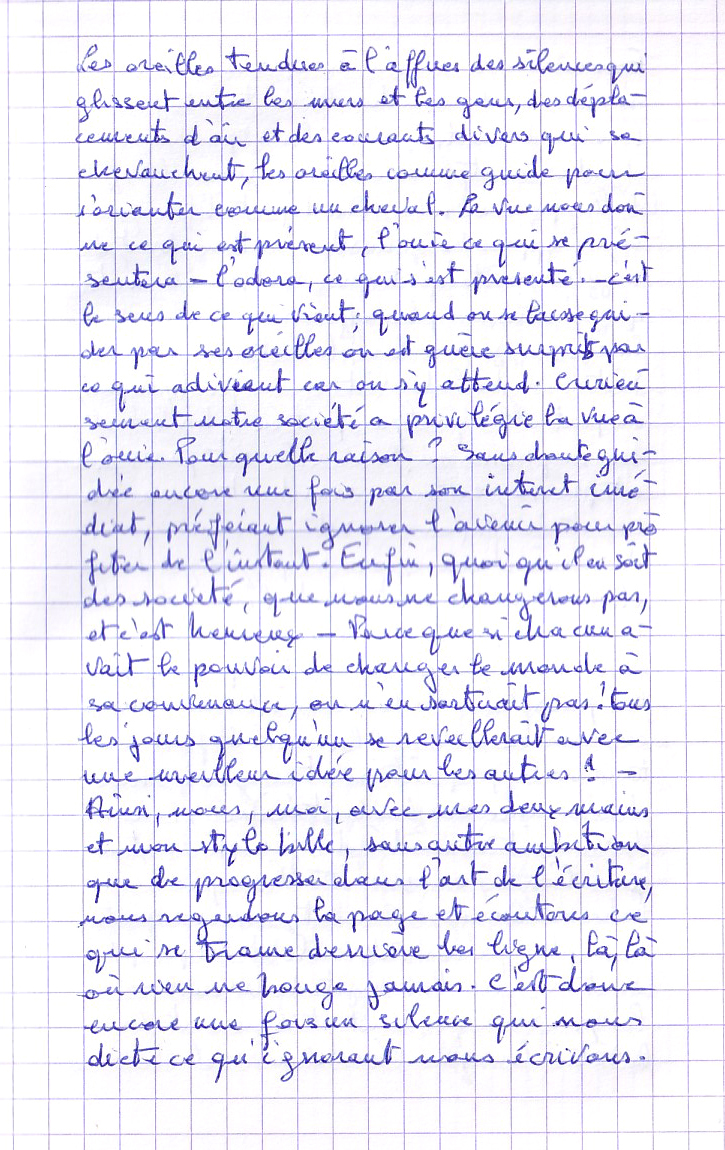 Les oreilles tendues à l'affues des silences qui
glissent entre les murs et les gens, des dépla-
cements d'air et des courants divers qui se
chevauchent, les oreilles comme guide pour
s'orianter comme un cheval. La vue nous don
ne ce qui est présent, l'ouïe ce qui se pré-
sentera – l'odora, ce qui s'est présenté. – c'est
le sens de ce qui vient; quand on se laisse gui-
der par ses oreilles on est guère surpris par
ce qui adivient car on s'y attend. Curieu
sement notre société a privilégié la vue à
l'ouie. Pour quelle raison ? Sans doute gui-
dée encore une fois par son interet imé-
diat, préférant ignorer l'avenir pour pro
fiter de l'instant. Enfin, quoi qu'il en soit
des societé, que nous ne changerons pas,
et c'est heureux – Parce que si chacun a-
vait le pouvoir de changer le monde à
sa convenance, on n'en sortirait pas ! tous
les jours quelqu'un se reveillerait avec
une meilleur idée pour les autres ! –
Ainsi, nous, moi, avec mes deux mains
et mon stylo bille, sans autre ambition
que de progresser dans l'art de l'écriture,
nous regardons la page et écoutons ce
qui se trame derrière les ligne, là, là
où rien ne bouge jamais. C'est donc
encore une fois un silence qui nous
dicte ce qu'ignorant nous écrivons.